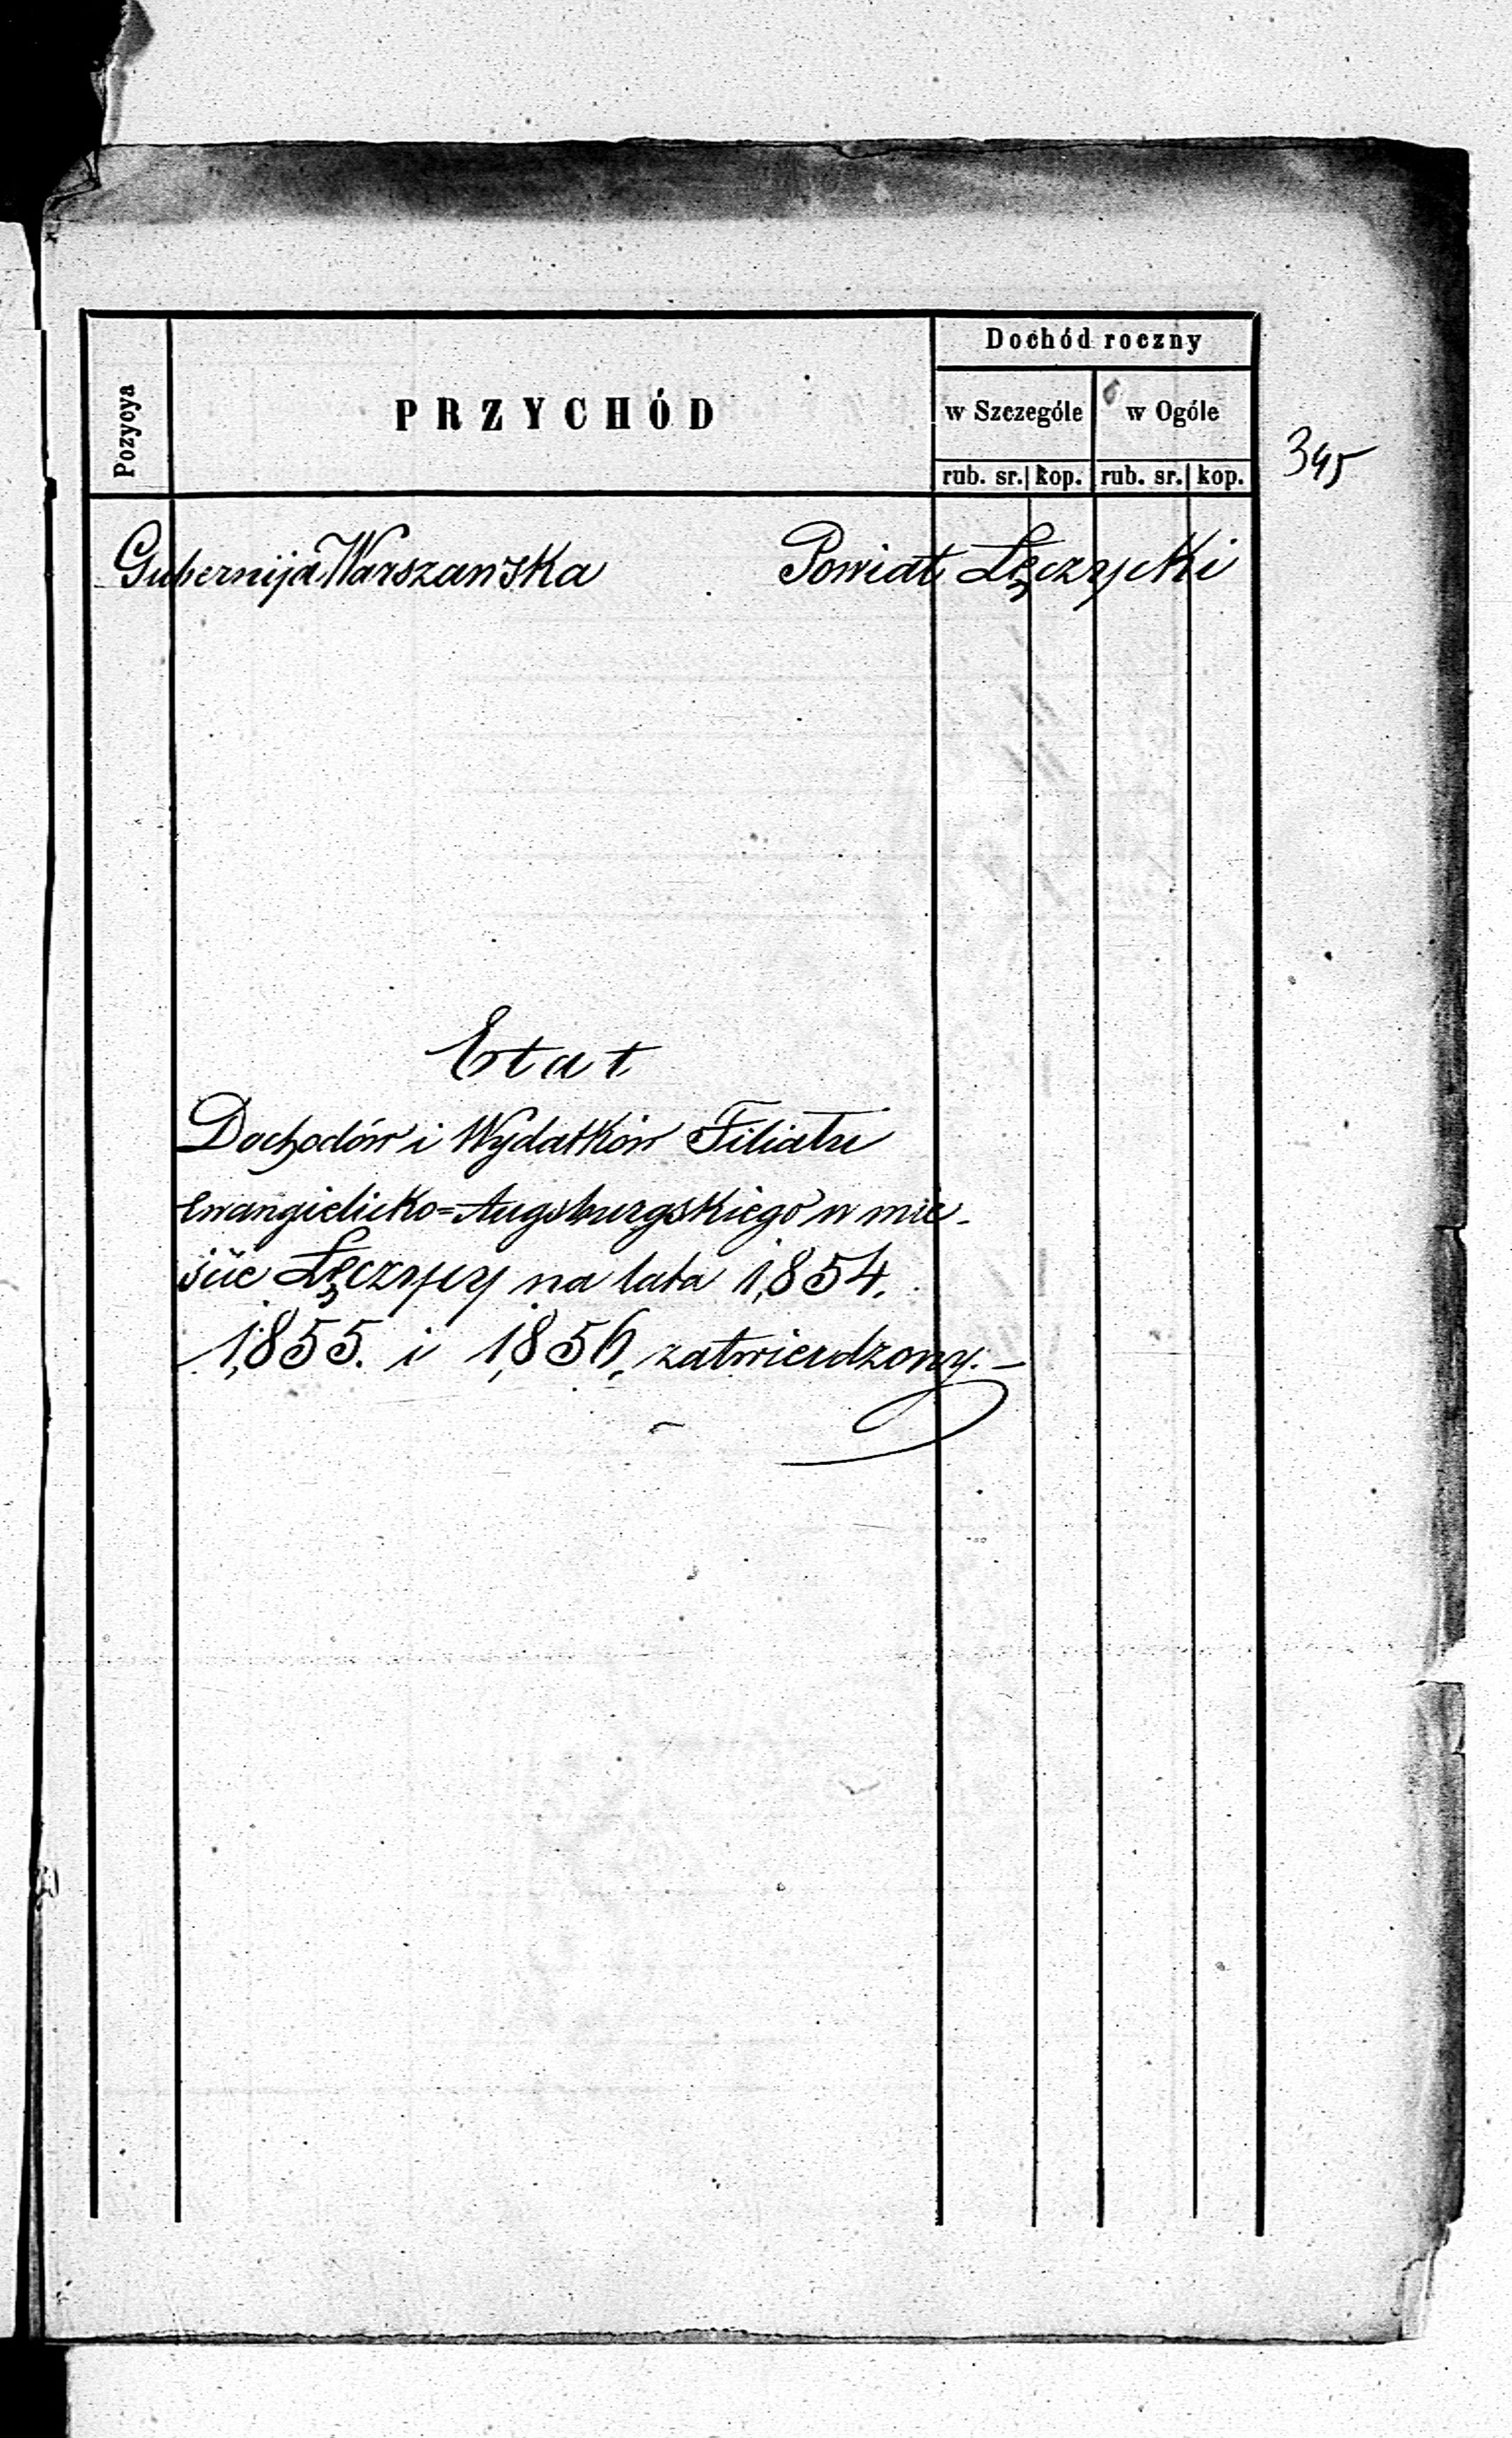 Dochód roczny
Pozycya
PRZYCHÓD
w Szczególe
w Ogóle
rub. sr. kop. rub. sr. kop.
345
Gubernija Warszawska Powiat Łęczycki
Etat
Dochodów i Wydatków Filiału
Ewangielicko=Augsburgskiego w mie-
ście Łęczycy na lata 1,854.
1,855. i 1,856, zatwierdzony.—